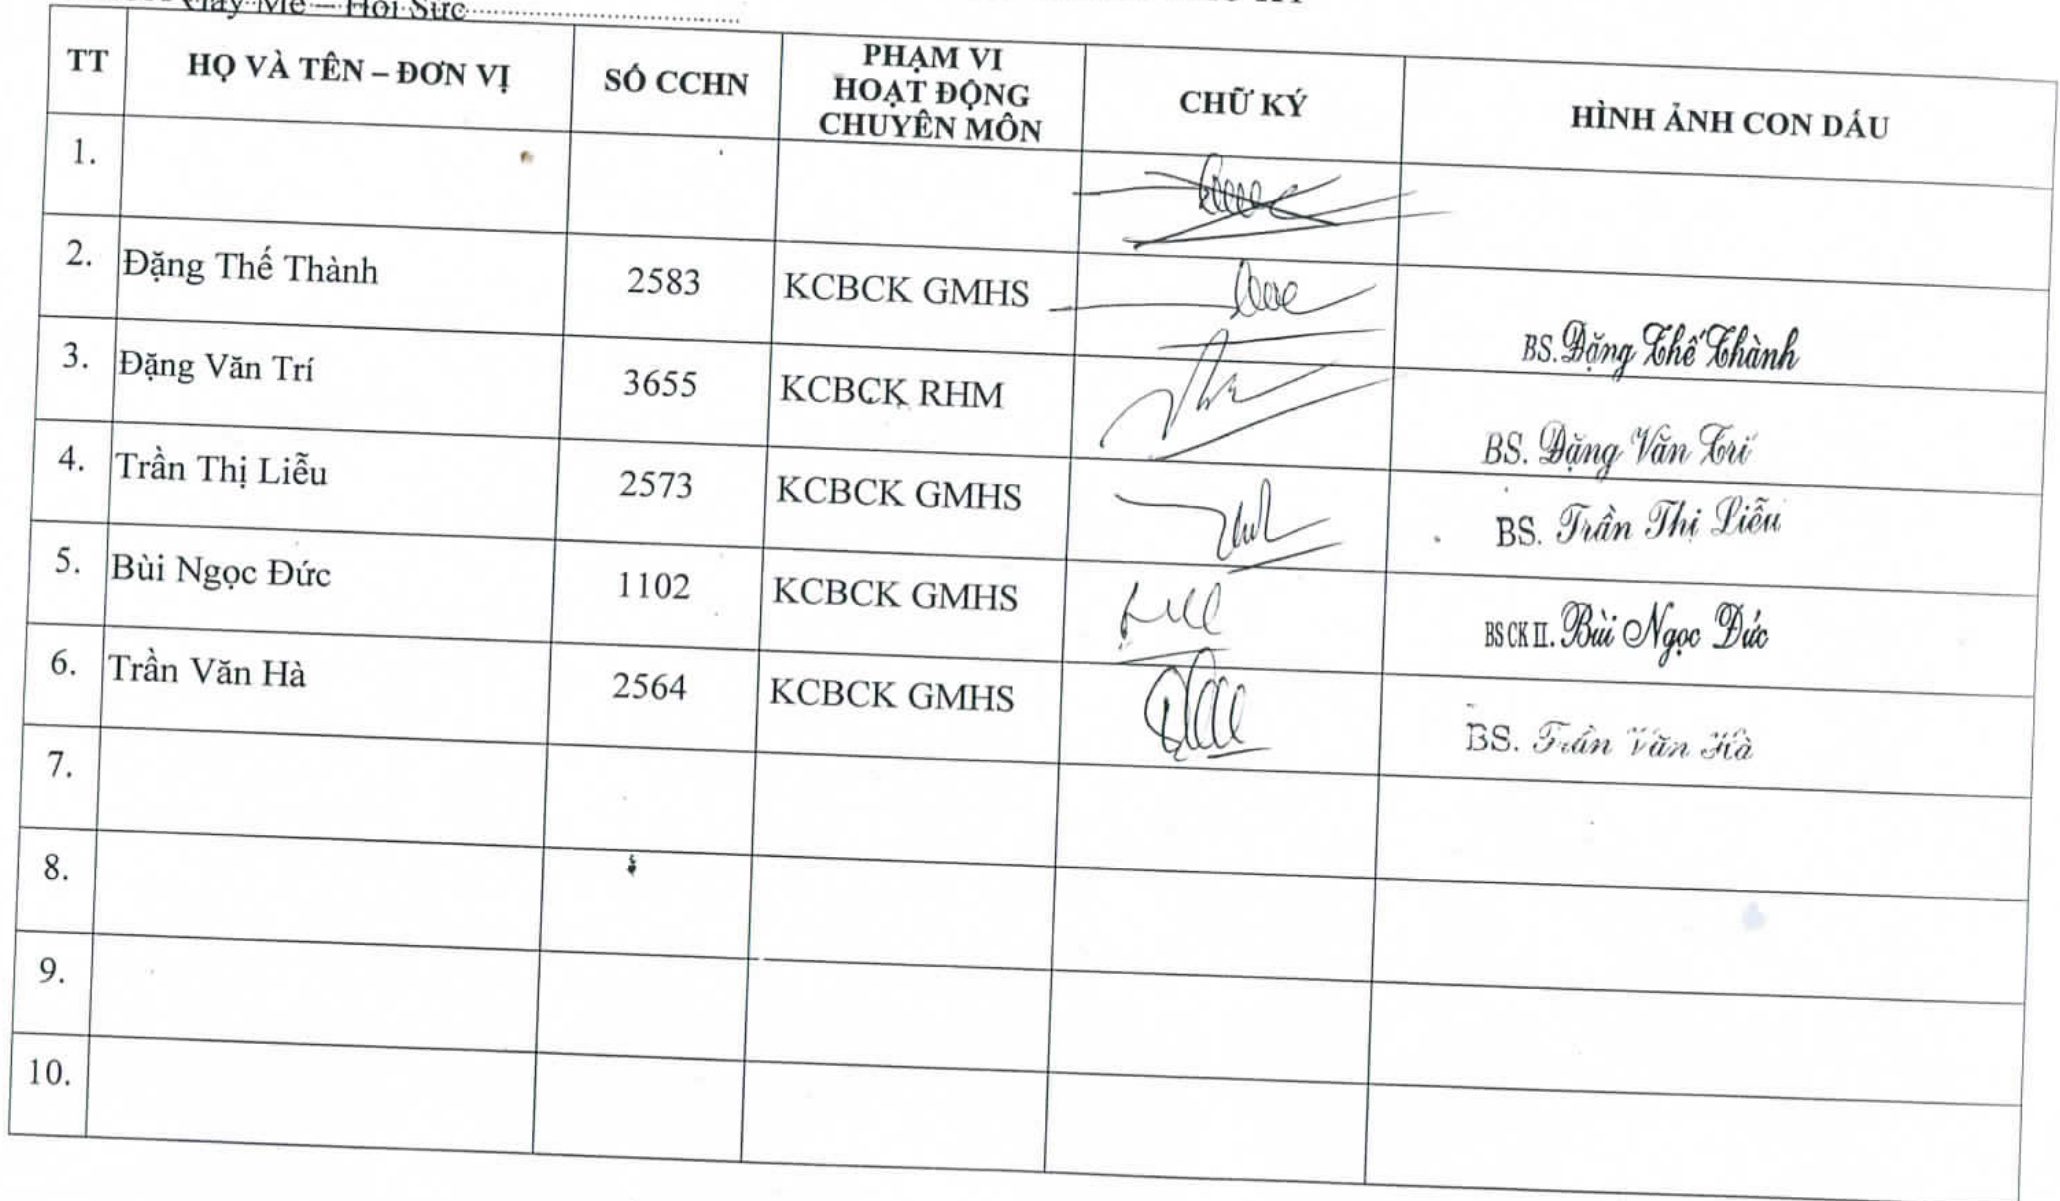 Gây Mê – Hồi Sức
TT HỌ VÀ TÊN – ĐƠN VỊ SỐ CCHN PHẠM VI HOẠT ĐỘNG CHUYÊN MÔN CHỮ KÝ HÌNH ẢNH CON DẤU
1.
2. Đặng Thế Thành 2583 KCBCK GMHS BS. Đặng Thế Thành
3. Đặng Văn Trí 3655 KCBCK RHM BS. Đặng Văn Trí
4. Trần Thị Liễu 2573 KCBCK GMHS BS. Trần Thị Liễu
5. Bùi Ngọc Đức 1102 KCBCK GMHS BS CK II. Bùi Ngọc Đức
6. Trần Văn Hà 2564 KCBCK GMHS BS. Trần Văn Hà
7.
8.
9.
10.